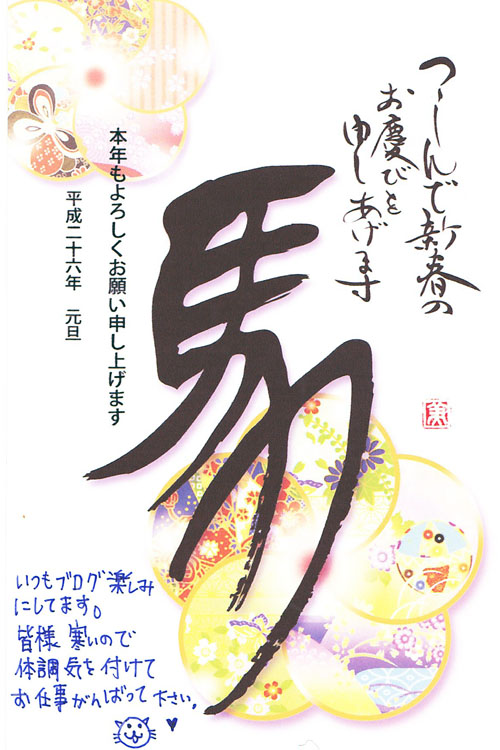 つゝしんで新春の
お慶びを
申しあげます
馬
本年もよろしくお願い申し上げます
平成二十六年　元旦
いつもブログ楽しみ
にしてます。
皆様 寒いので
体調気を付けて
お仕事がんばって下さい。